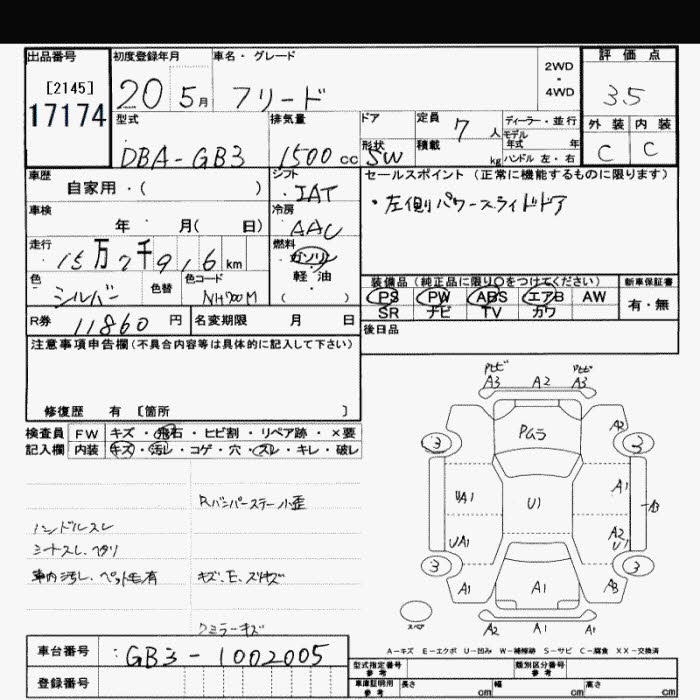 出品番号 初度登録年月 車名・グレード 2WD・4WD 評価点
[2145]
17174 20 5月 フリード 3.5
型式 排気量 ドア 定員 7人 ディーラー・並行 外装 内装
モデル年式 年
DBA-GB3 1500cc 形状 SW 積載 kg ハンドル 左・右 C C
車歴 シフト セールスポイント (正常に機能するものに限ります)
自家用・( ) IAT ・左側パワースライドドア
車検 冷房
年 月( 日) AAC
走行 燃料
15万7千916km ガソリン
軽・油
( )
色 色替 色コード 装備品(純正品に限り○をつけてください) 新車保証書
シルバー NH700M PS PW ABS エアB AW 有・無
SR ナビ TV カワ
R券 11860円 名変期限 月 日 後日品
注意事項申告欄(不具合内容等は具体的に記入して下さい)
修復歴 有 [箇所 ]
検査員 FW キズ・飛石・ヒビ割・リペア跡・×要
記入欄 内装 キズ・汚レ・コゲ・穴・スレ・キレ・破レ
Rバンパーステー小歪
ハンドルスレ
シートスレ、ヘタリ
車内汚レ、ペット毛有 キズ、E、スリキズ
ミラーキズ
A3 A2 A3
PムラA2
3 3
UA1 U1 A1 A3
UA1 A2 U1
3 3
A1 A1 A3
A2 A1 A1
A-キズ E-エクボ U-凹み W-補修跡 S-サビ C-腐食 XX-交換済
車台番号 : GB3-1002005
登録番号
型式指定番号 参考 類別区分番号 参考
車庫証明用 参考 長さ cm 幅 cm 高さ cm